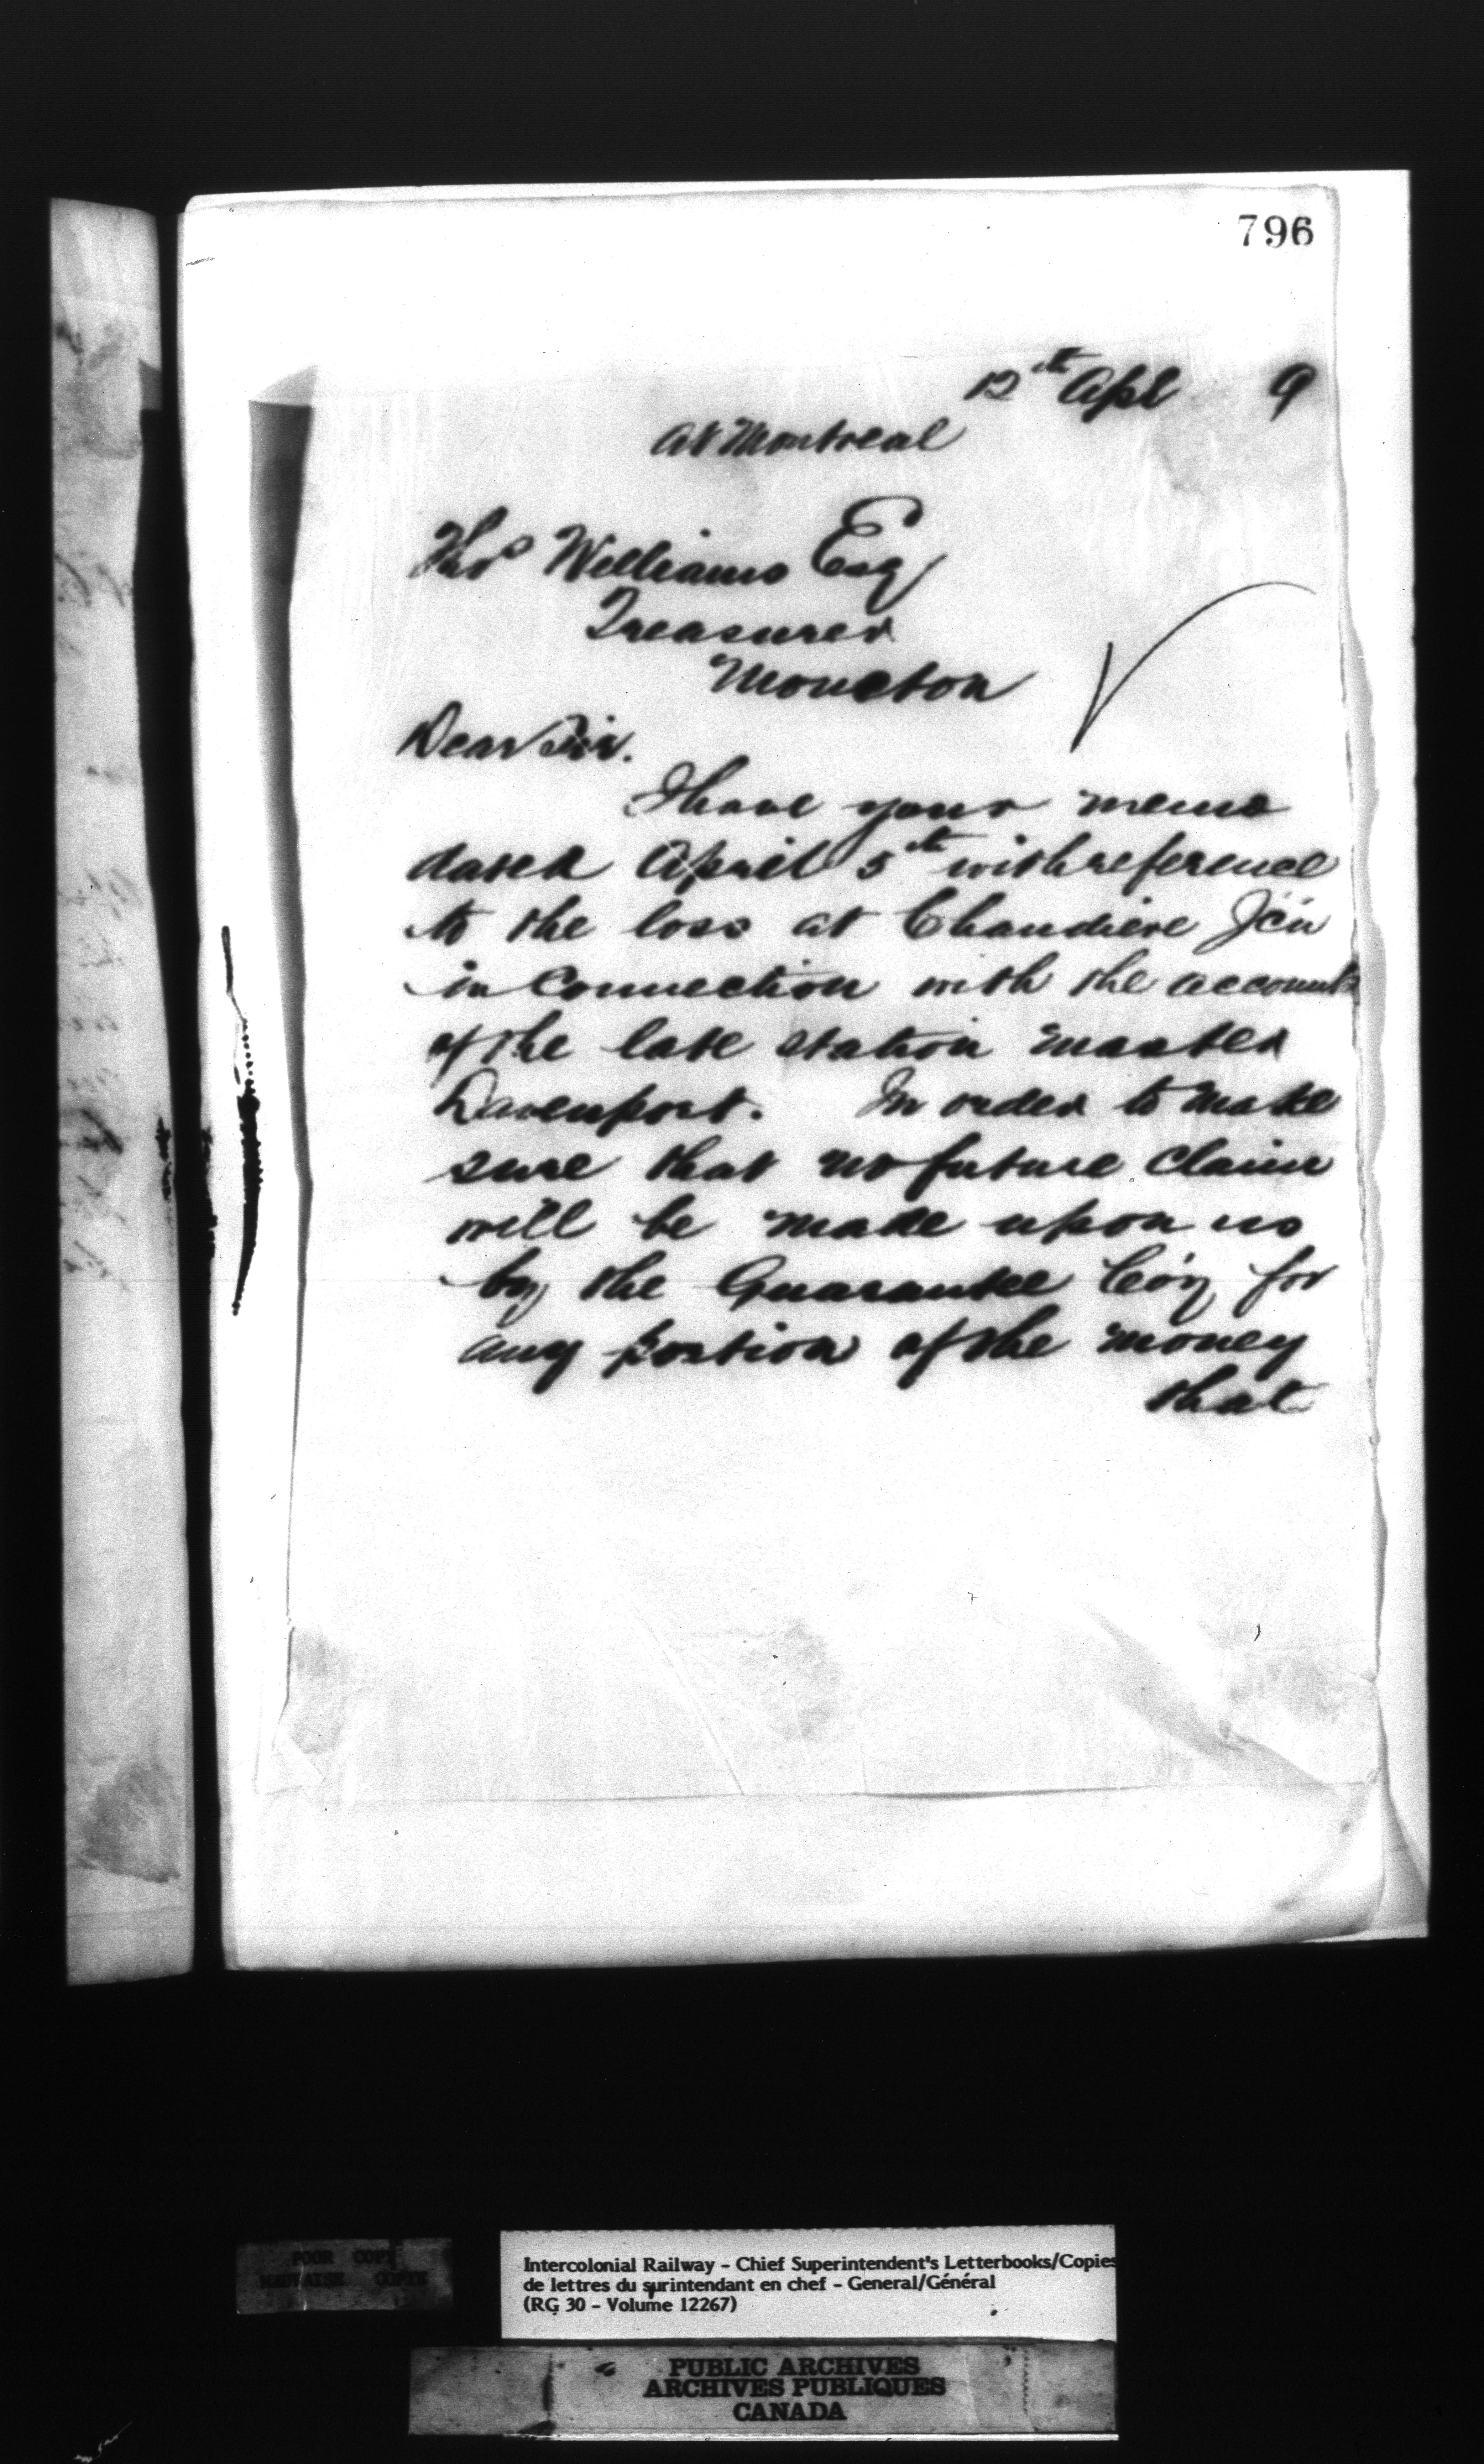 796
12th Apl 9
At Montreal
Thos Williams Esq
Treasurer
Moncton
Dear Sir.
I have your memo
dated April 5th with reference
to the loss at Chaudiere Jc'n
in connection with the accounts
of the late station master
Davenport. In order to make
sure that no future claim
will be made upon us
by the Guarantee Co'y for
any portion of the money
that
POOR COPY
MAUVAISE COPIE
Intercolonial Railway - Chief Superintendent's Letterbooks/Copies
de lettres du surintendant en chef - General/Général
(RG 30 - Volume 12267)
PUBLIC ARCHIVES
ARCHIVES PUBLIQUES
CANADA